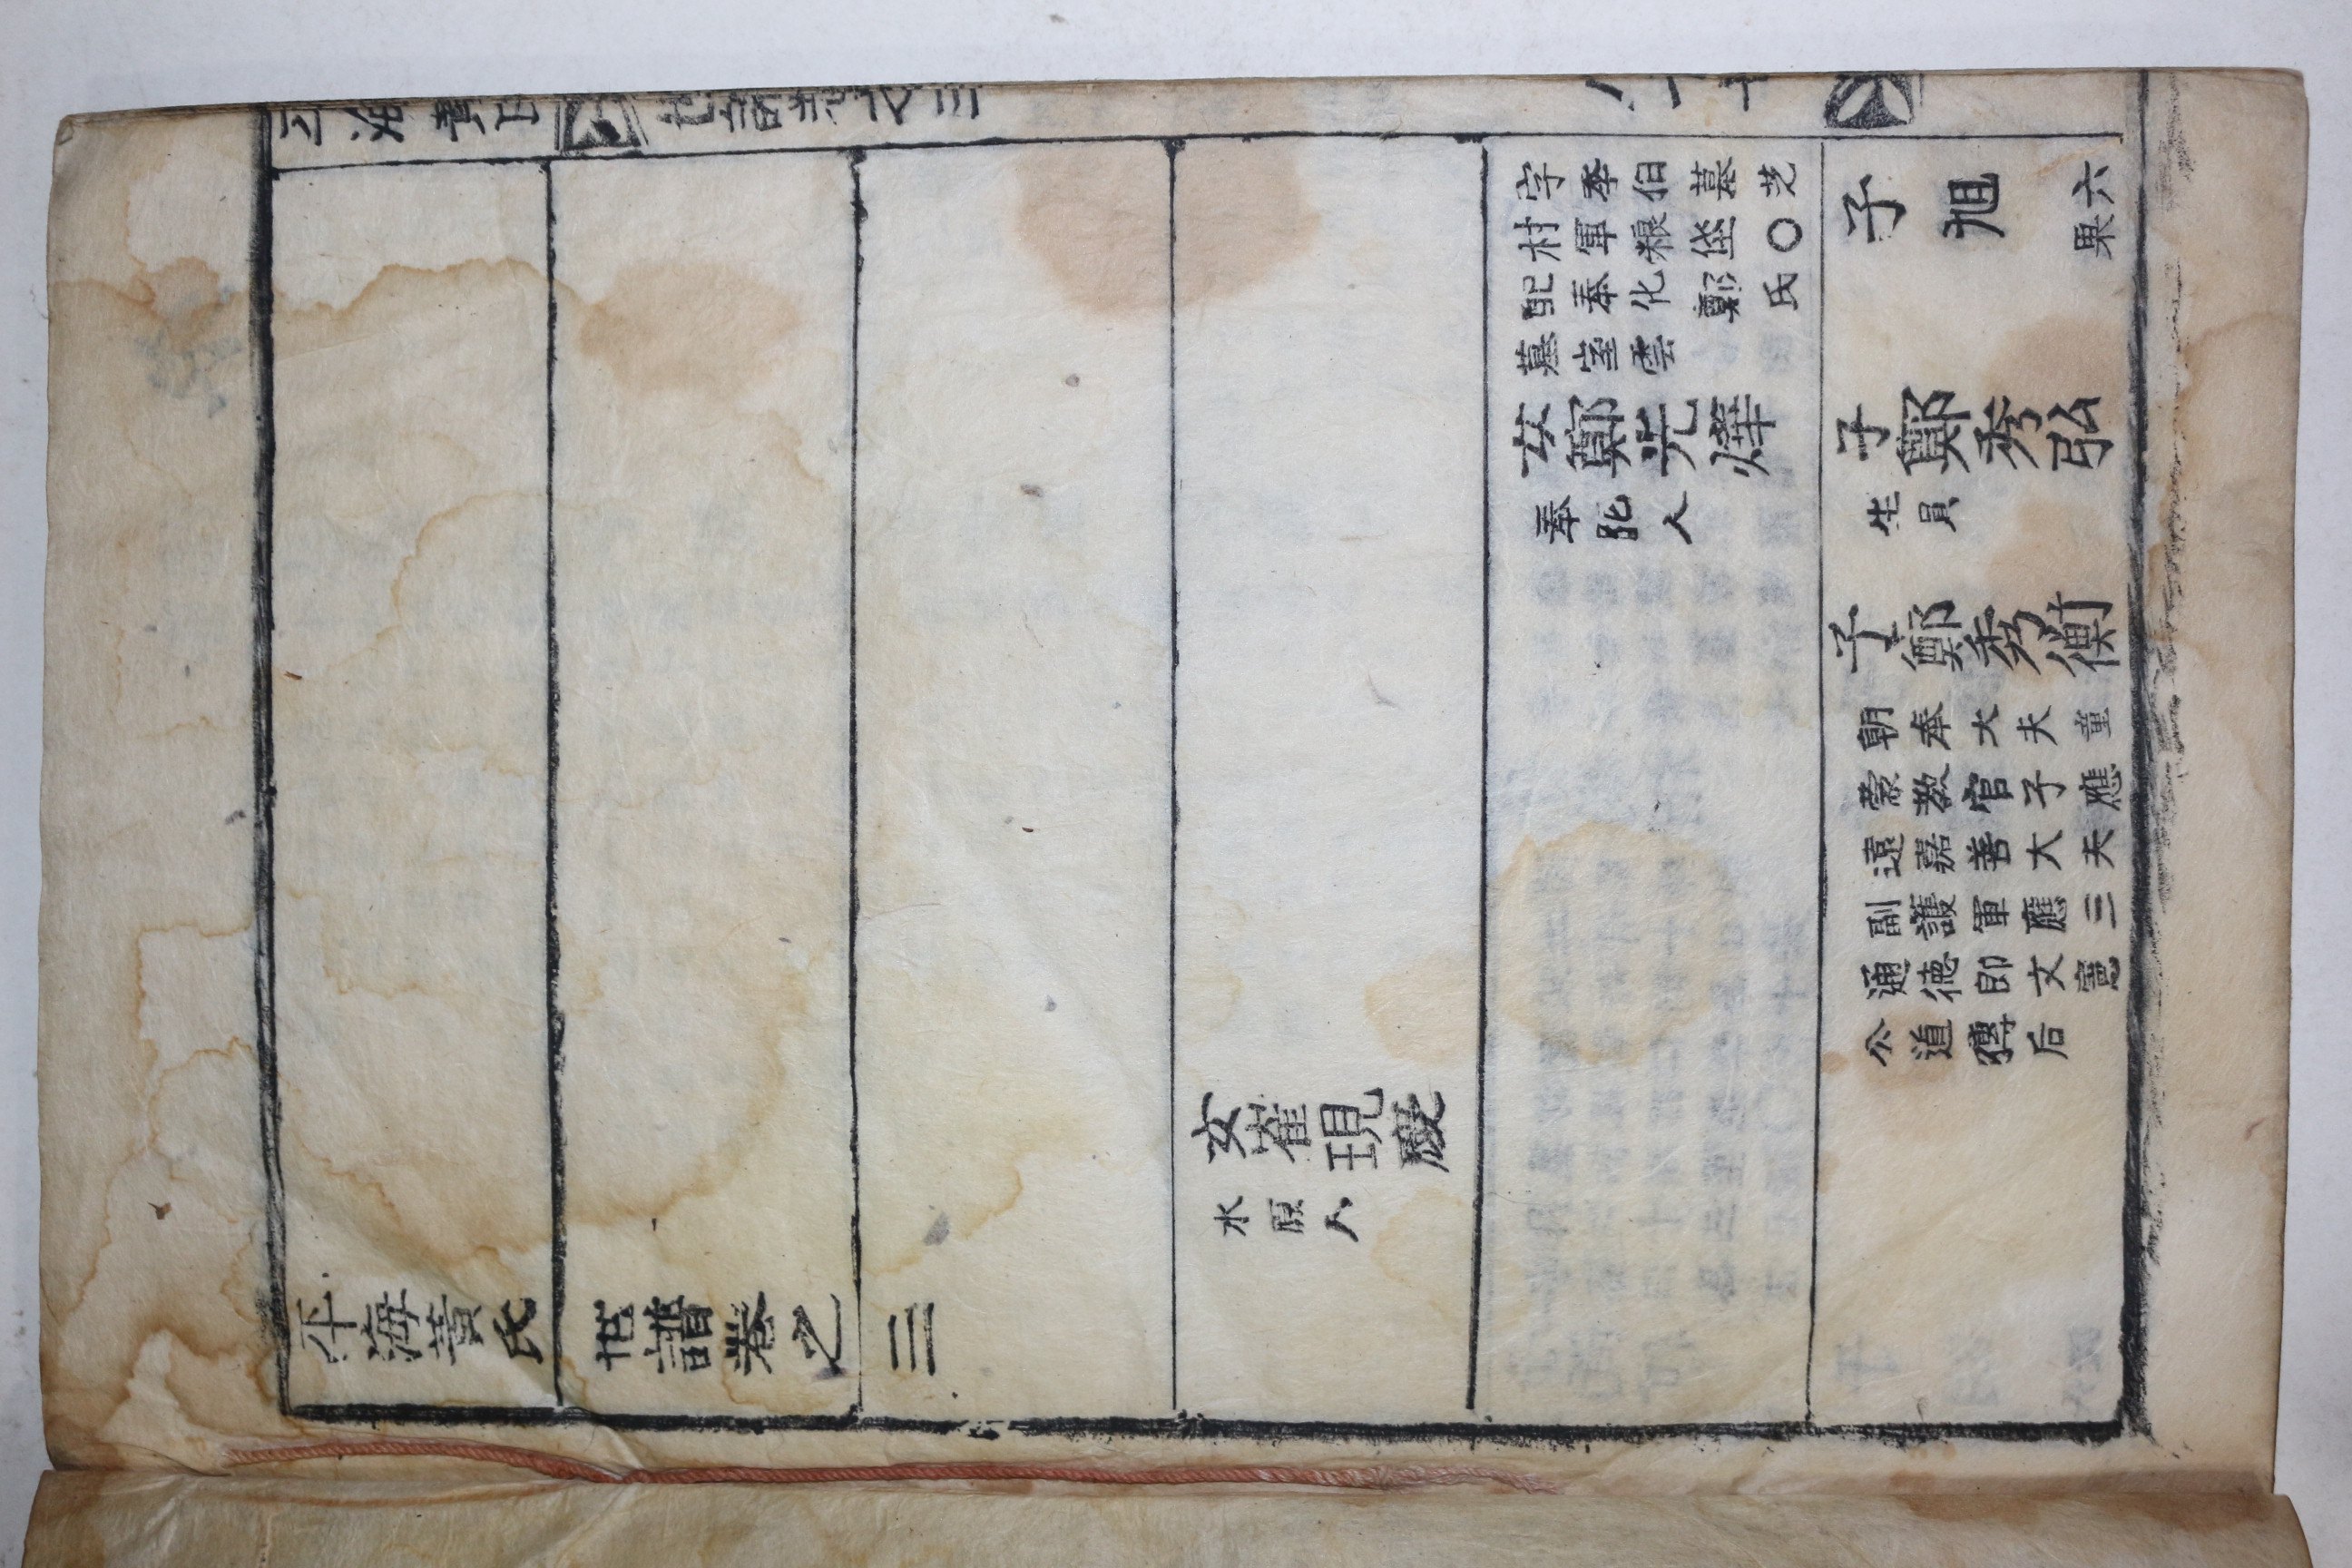 女崔現慶
水原人
字季伯墓芝
村軍粮垈○
配奉化鄭氏
墓室雲
女鄭光燁
奉化人
子旭
六
果
子鄭秀弘
生員
子鄭秀衡
朝奉大夫童
蒙教官子應
遠嘉善大夫
副護軍應三
通德郎文憲
公道傳后
平海黃氏世譜卷之三